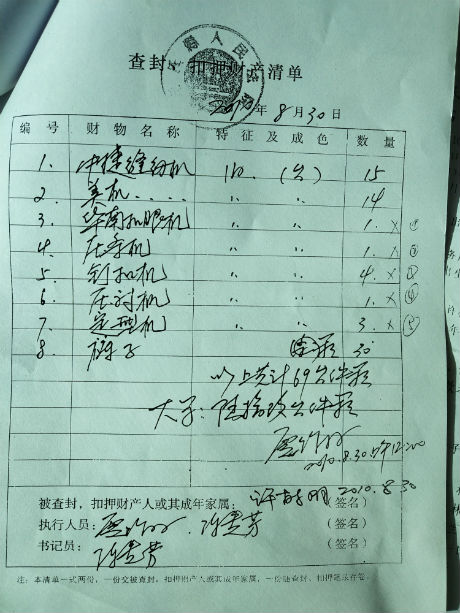 查封、扣押财产清单
2010年8月30日
编号 财物名称 特征及成色 数量
1. 中捷缝纫机 旧.（台） 15
2. 美机..... 〃 〃 14
3. 华南扣眼机 〃 〃 1. x ①
4. 压季机 〃 〃 1. x ②
5 钉扣机 〃 〃 4. x ③
6. 压衬机 〃 〃 1. x ④
7. 定型机 〃 〃 3. x ⑤
8. 裤子 30
以上共计69台件
大写: 陆拾玖台件
2010.8.30
被查封，扣押财产人或其成年家属: 2010.8.30（签名）
执行人员: （签名）
书记员: （签名）
注：本清单一式两份，一份交被查封，扣押财产人或其成年家属，一份随查封、扣押笔录存卷。